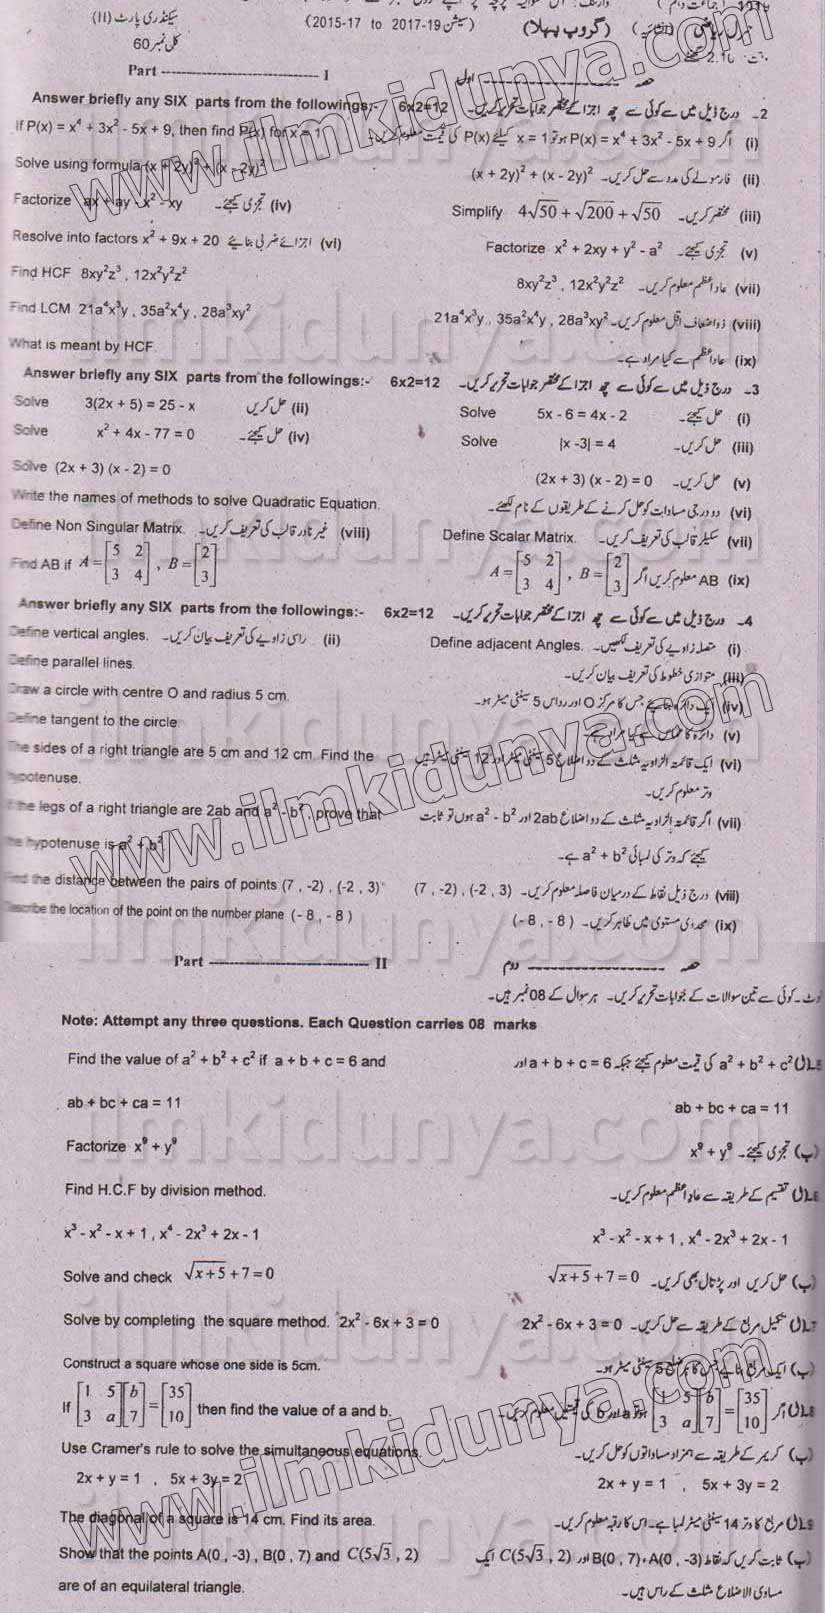 سیکنڈری پارٹ (II)
(سیشن 2015-17 to 2017-19)
(گروپ پہلا)
کل نمبر 60
Part I
حصہ اول
Answer briefly any SIX parts from the followings:- 6x2=12 2۔ درج ذیل میں سے کوئی سے چھ اجزا کے مختصر جوابات تحریر کریں۔
If P(x) = x⁴ + 3x² - 5x + 9, then find P(x) for x = 1 (i) اگر P(x) = x⁴ + 3x² - 5x + 9 ہو تو x = 1 کیلئے P(x) کی قیمت معلوم کریں۔
Solve using formula (x + 2y)² + (x - 2y)² (ii) فارمولے کی مدد سے حل کریں۔ (x + 2y)² + (x - 2y)²
Simplify 4√50 + √200 + √50 (iii) مختصر کریں۔
Factorize ax + ay - x² - xy (iv) تجزی کیجئے۔
Factorize x² + 2xy + y² - a² (v) تجزی کیجئے۔
Resolve into factors x² + 9x + 20 (vi) اجزائے ضربی بنائیے
Find HCF 8xy²z³ , 12x²y²z² (vii) عاد اعظم معلوم کریں۔ 8xy²z³ , 12x²y²z²
Find LCM 21a⁴x³y , 35a²x⁴y , 28a³xy² (viii) ذو اضعاف اقل معلوم کریں۔ 21a⁴x³y , 35a²x⁴y , 28a³xy²
What is meant by HCF. (ix) عاد اعظم سے کیا مراد ہے۔
Answer briefly any SIX parts from the followings:- 6x2=12 3۔ درج ذیل میں سے کوئی سے چھ اجزا کے مختصر جوابات تحریر کریں۔
Solve 5x - 6 = 4x - 2 (i) حل کیجئے۔
Solve 3(2x + 5) = 25 - x (ii) حل کریں
Solve |x -3| = 4 (iii) حل کریں۔
Solve x² + 4x - 77 = 0 (iv) حل کیجئے۔
Solve (2x + 3) (x - 2) = 0 (v) حل کریں۔ (2x + 3) (x - 2) = 0
Write the names of methods to solve Quadratic Equation. (vi) دو درجی مساوات کو حل کرنے کے طریقوں کے نام لکھئے۔
Define Scalar Matrix. (vii) سکیلر قالب کی تعریف کریں۔
Define Non Singular Matrix. (viii) غیر نادر قالب کی تعریف کریں۔
Find AB if A = [5 2; 3 4] , B = [2; 3] (ix) AB معلوم کریں اگر A = [5 2; 3 4] , B = [2; 3]
Answer briefly any SIX parts from the followings:- 6x2=12 4۔ درج ذیل میں سے کوئی سے چھ اجزا کے مختصر جوابات تحریر کریں۔
Define adjacent Angles. (i) متصلہ زاویے کی تعریف لکھیں۔
Define vertical angles. (ii) راسی زاویے کی تعریف بیان کریں۔
Define parallel lines. (iii) متوازی خطوط کی تعریف بیان کریں۔
Draw a circle with centre O and radius 5 cm. (iv) ایک دائرہ بنائیے جس کا مرکز O اور رداس 5 سینٹی میٹر ہو۔
Define tangent to the circle. (v) دائرہ کا مماس سے کیا مراد ہے۔
The sides of a right triangle are 5 cm and 12 cm. Find the (vi) ایک قائمۃ الزاویہ مثلث کے دو اضلاع 5 سینٹی میٹر اور 12 سینٹی میٹر ہیں
hypotenuse. وتر معلوم کریں۔
If the legs of a right triangle are 2ab and a² - b², prove that (vii) اگر قائمۃ الزاویہ مثلث کے دو اضلاع 2ab اور a² - b² ہوں تو ثابت
the hypotenuse is a² + b² کیجئے کہ وتر کی لمبائی a² + b² ہے۔
Find the distance between the pairs of points (7 , -2) , (-2 , 3) (viii) درج ذیل نقاط کے درمیان فاصلہ معلوم کریں۔ (7 , -2) , (-2 , 3)
Describe the location of the point on the number plane (- 8 , - 8) (ix) عددی مستوی میں ظاہر کریں۔ (- 8 , - 8)
Part II
حصہ دوم
نوٹ۔ کوئی سے تین سوالات کے جوابات تحریر کریں۔ ہر سوال کے 08 نمبر ہیں۔
Note: Attempt any three questions. Each Question carries 08 marks
Find the value of a² + b² + c² if a + b + c = 6 and 5۔(ل) a² + b² + c² کی قیمت معلوم کیجئے جبکہ a + b + c = 6 اور
ab + bc + ca = 11 ab + bc + ca = 11
Factorize x⁹ + y⁹ (ب) تجزی کیجئے۔ x⁹ + y⁹
Find H.C.F by division method. 6۔(ل) تقسیم کے طریقہ سے عاد اعظم معلوم کریں۔
x³ - x² - x + 1 , x⁴ - 2x³ + 2x - 1 x³ - x² - x + 1 , x⁴ - 2x³ + 2x - 1
Solve and check √(x+5) + 7 = 0 (ب) حل کریں اور پڑتال بھی کریں۔ √(x+5) + 7 = 0
Solve by completing the square method. 2x² - 6x + 3 = 0 7۔(ل) تکمیل مربع کے طریقہ سے حل کریں۔ 2x² - 6x + 3 = 0
Construct a square whose one side is 5cm. (ب) ایک مربع بنائیے جس کا ہر ضلع 5 سینٹی میٹر ہو۔
If [1 5; 3 a][b; 7] = [35; 10] then find the value of a and b. 8۔(ل) اگر [1 5; 3 a][b; 7] = [35; 10] ہو تو a اور b کی قیمتیں معلوم کریں۔
Use Cramer's rule to solve the simultaneous equations. (ب) کریمر کے طریقہ سے ہمزاد مساداتوں کو حل کریں۔
2x + y = 1 , 5x + 3y = 2 2x + y = 1 , 5x + 3y = 2
The diagonal of a square is 14 cm. Find its area. 9۔(ل) مربع کا وتر 14 سینٹی میٹر لمبا ہے۔ اس کا رقبہ معلوم کریں۔
Show that the points A(0 , -3) , B(0 , 7) and C(5√3 , 2) (ب) ثابت کریں کہ نقاط A(0 , -3) ، B(0 , 7) اور C(5√3 , 2) ایک
are of an equilateral triangle. مساوی الاضلاع مثلث کے راس ہیں۔
www.ilmkidunya.com
ilmkidunya.com